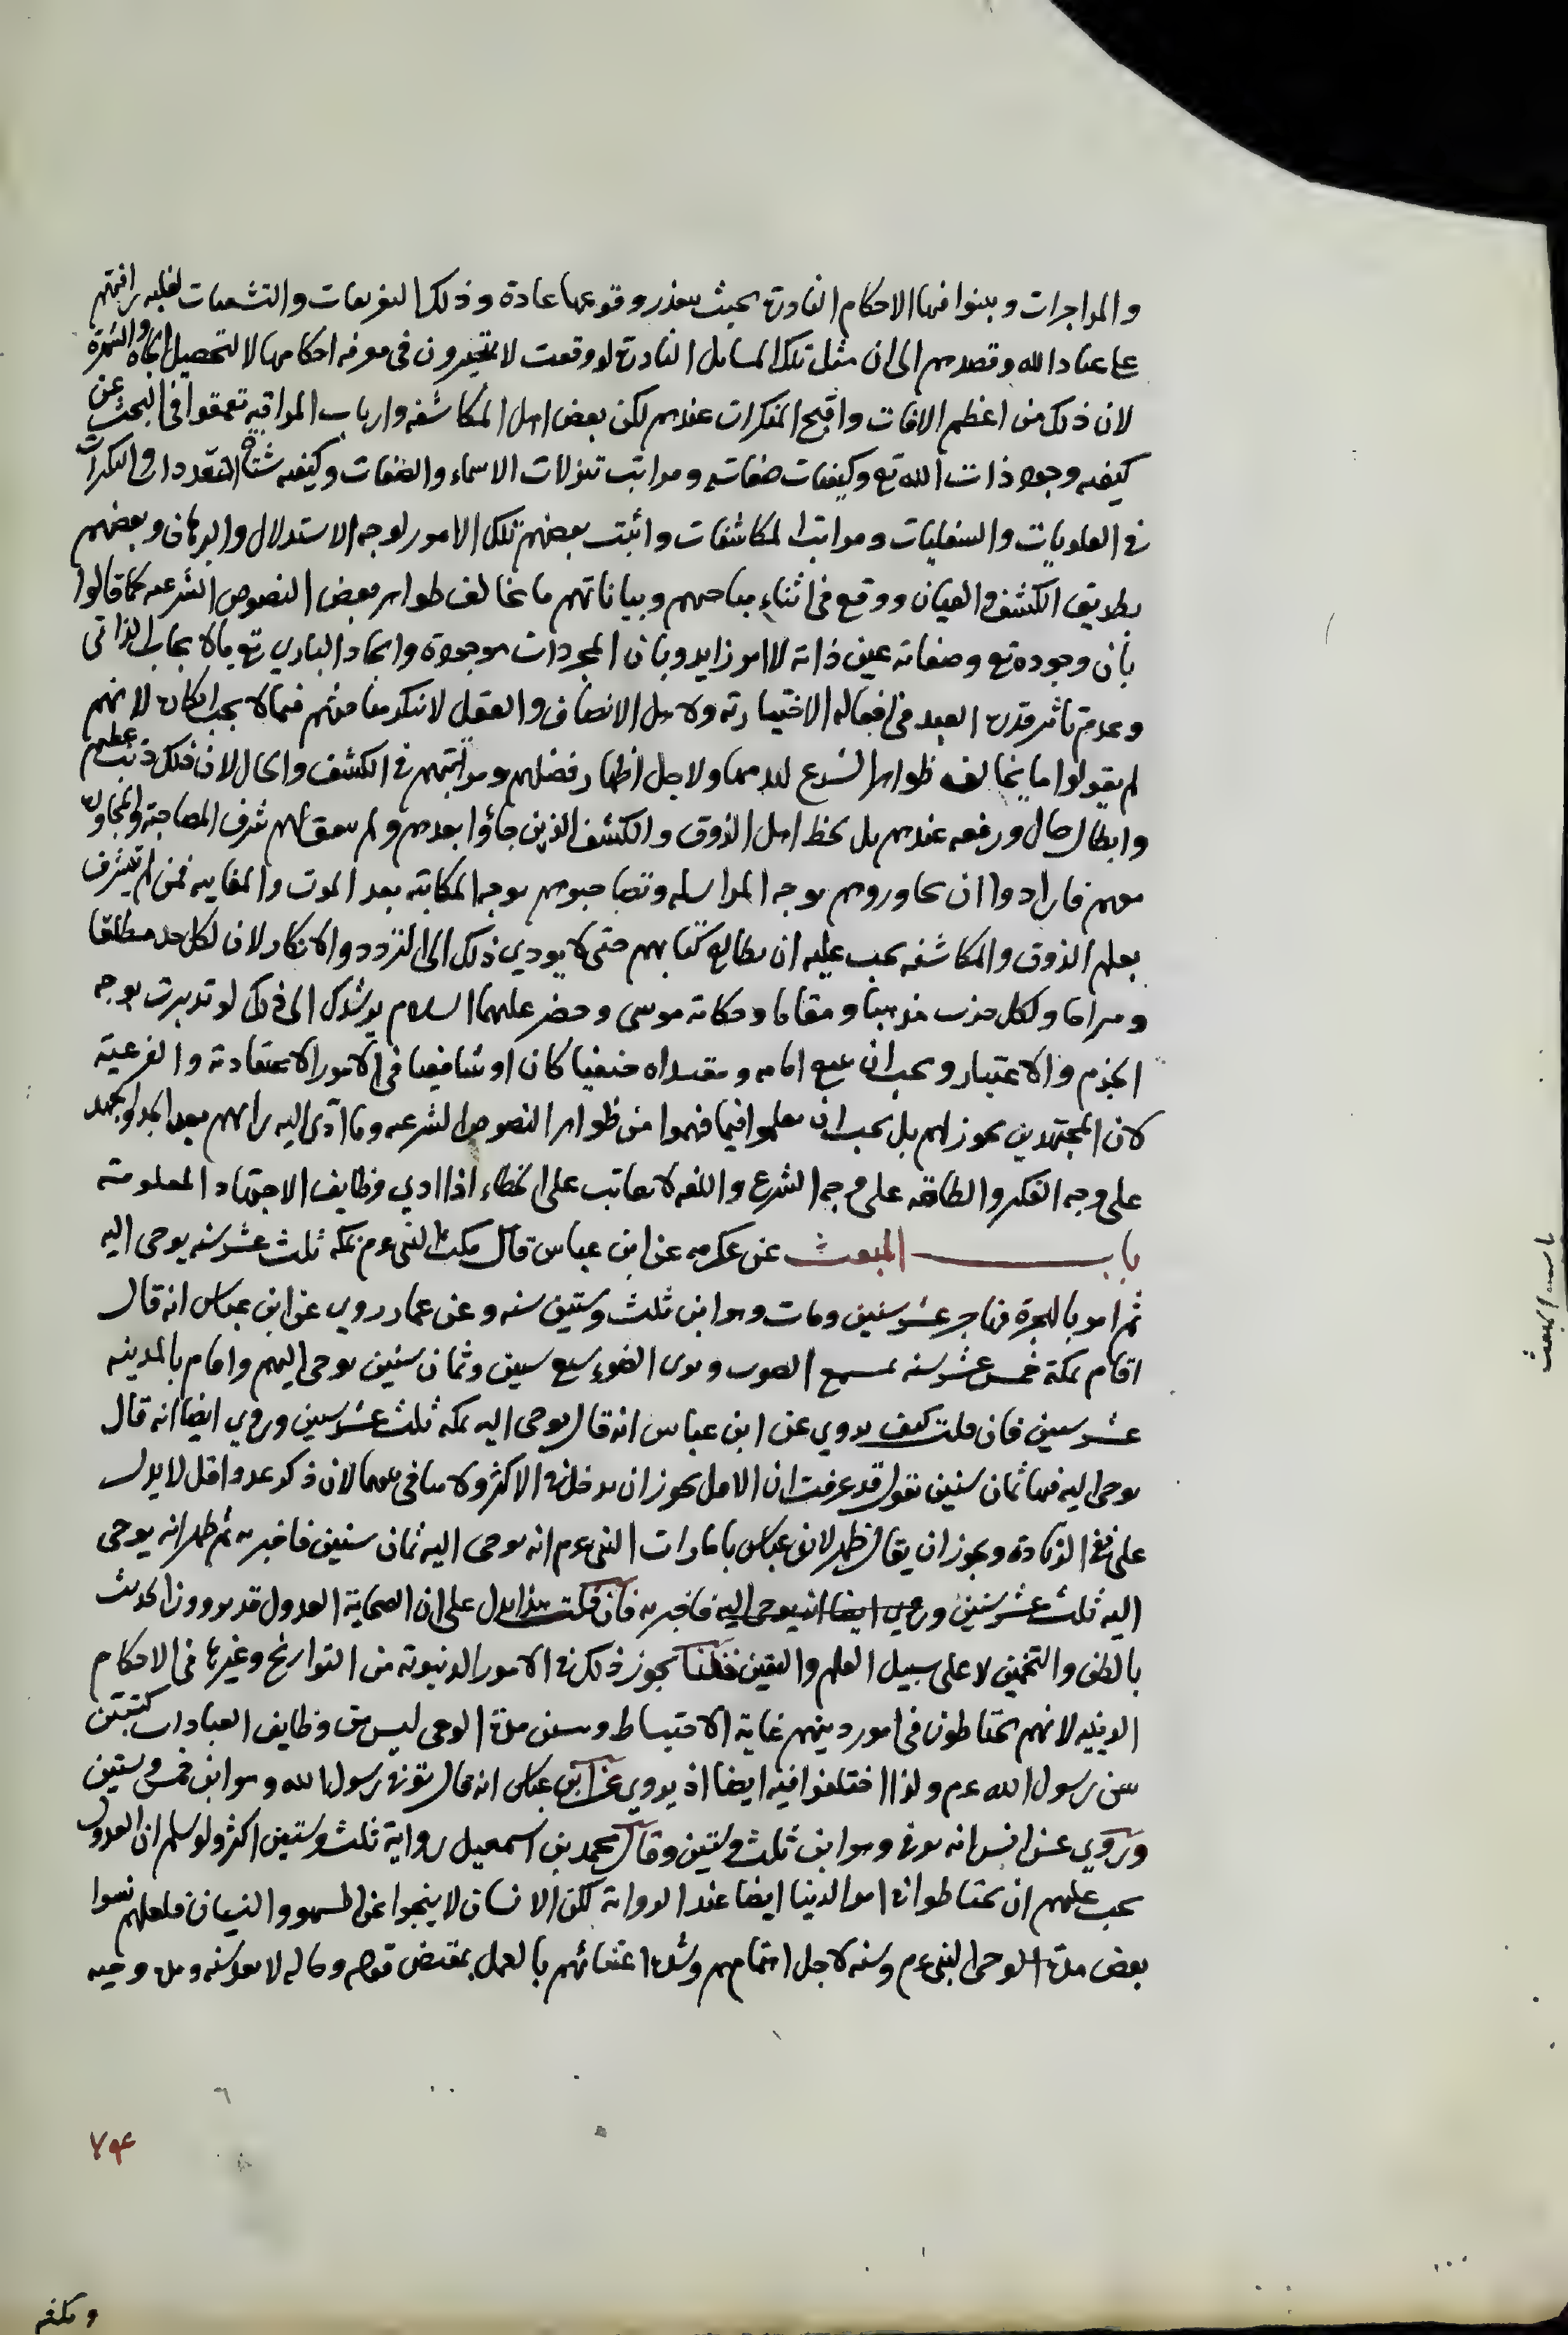 والمزاجرات وبينوا فيها الاحكام النادرة بحيث يتعذر وقوعها عادة وذلك التفريعات والتشعبات لغلبة رافتهم
على عباد الله وقصدهم الى ان مثل تلك المسايل النادرة لو وقعت لا يتحيرون في معرفة احكامها لا لتحصيل الجاه والشهرة
لان ذلك من اعظم الافات واقبح المنكرات عندهم لكن بعض اهل المكاشفه وارباب المراقبه تعمقوا في البحث عن
كيفيه وجود ذات الله تع وكيفيات صفاته ومراتب تنزلات الاسماء والصفات وكيفيه التعددات والتكثرات
في العلويات والسفليات ومراتب المكاشفات واثبت بعضهم تلك الامور لوجه الاستدلال والبرهان وبعضهم
بطريق الكشف والعيان ووقع في اثناء مباحثهم وبياناتهم ما يخالف ظواهر بعض النصوص الشرعيه كما قالوا
بان وجوده تع وصفاته عين ذاته لا امر زايد وبان المجردات موجودة وايجاد الباري تع بالايجاب الذاتي
وعدم تاثير قدرة العبد في افعاله الاختيارية ولاهل الانصاف والعقل لا ينكر منهم فيما لا يجب انكاره لانهم
لم يقولوا ما يخالف ظواهر الشرع ولاجل اظهار فضلهم ومراتبهم في الكشف والحال لان ذلك ذنب عظيم
وابطال حال ورفعه عندهم بل لحظ اهل الذوق والكشف الذين جاؤا بعدهم ولم يتفق لهم شرف المصاحبة والمجاورة
معهم فارادوا ان يحاوروهم بوجه المراسله وتصاحبوهم بوجه المكاتبة بعد الموت والمغايبه فمن لم يتشرف
بعلم الذوق والمكاشفه يجب عليه ان يطالع كتابهم حتى لا يودي ذلك الى التردد والانكار لان لكل حد مطلقا
ولكل حزب مذهبا ومقاما وحكاية موسى وخضر عليهما السلام يرشدك الى ذلك لو تدبرت بوجه
الجزم والاعتبار ويجب ان يتبع امامه ومقتداه حنفيا كان او شافعيا في الامور الاعتقادية والفرعية
لان المجتهدين يجوز لهم بل يجب ان يعلموا فيما فهموا من ظواهر النصوص الشرعيه وما ادى اليه رايهم بعد الجد والجهد
على وجه الفكر والطاقه على وجه الشرع واللغه لا يعاتب على الخطاء اذا ادي وظايف الاجتهاد المعلومة
باب المبعث عن عكرمه عن ابن عباس قال مكث النبي عم بمكه ثلث عشر سنه يوحى اليه
ثم امر بالهجرة فهاجر عشر سنين ومات وهو ابن ثلث وستين سنه وعن عمار روي عن ابن عباس انه قال
اقام بمكة خمس عشر سنه يسمع الصوت ويرى الضوء سبع سنين وثمان سنين يوحى اليهم واقام بالمدينه
عشر سنين فان قلت كيف يروي عن ابن عباس انه قال يوحى اليه بمكه ثلث عشر سنين وروي ايضا انه قال
يوحى اليه فيها ثمان سنين نقول قد عرفت ان الاقل يجوز ان يدخل في الاكثر ولا ينافي بينهما لان ذكر عدد اقل لا يدل
على نفي الزيادة ويجوز ان يقال ظهر لابن عباس بامارات النبي عم انه يوحى اليه ثمان سنين فاخبر به ثم ظهر انه يوحى
اليه ثلث عشر سنين وروي ايضا انه يوحى اليه فاخبر به فان قلت هذا يدل على ان الصحابة العدول قد يروون الحديث
بالظن والتخمين لا على سبيل العلم واليقين قلنا يجوز ذلك في الامور الدنيوية من التواريخ وغيرها في الاحكام
الدينيه لانهم يحتاطون في امور دينهم غاية الاحتياط وسنن مدة الوحي ليس من وظايف العبادات
سن رسول الله عم ولذا اختلفوا فيه ايضا اذ يروي عن ابن عباس انه قال توفي رسول الله وهو ابن خمس وستين
وروي عن انس انه توفي وهو ابن ثلث وستين وقال محمد بن اسمعيل رواية ثلث وستين اكثر ولو سلم ان العدول
يجب عليهم ان يحتاطوا في امر الدنيا ايضا عند الرواية لكن الانسان لا ينجوا عن السهو والنسيان فلعلهم نسوا
بعض مدة الوحي النبي عم وسنه لاجل اهتمامهم وشدة اعتنائهم بالعمل بمقتضى قوله وحاله لا بعد سنه ومدة وحيه
باب المبعث